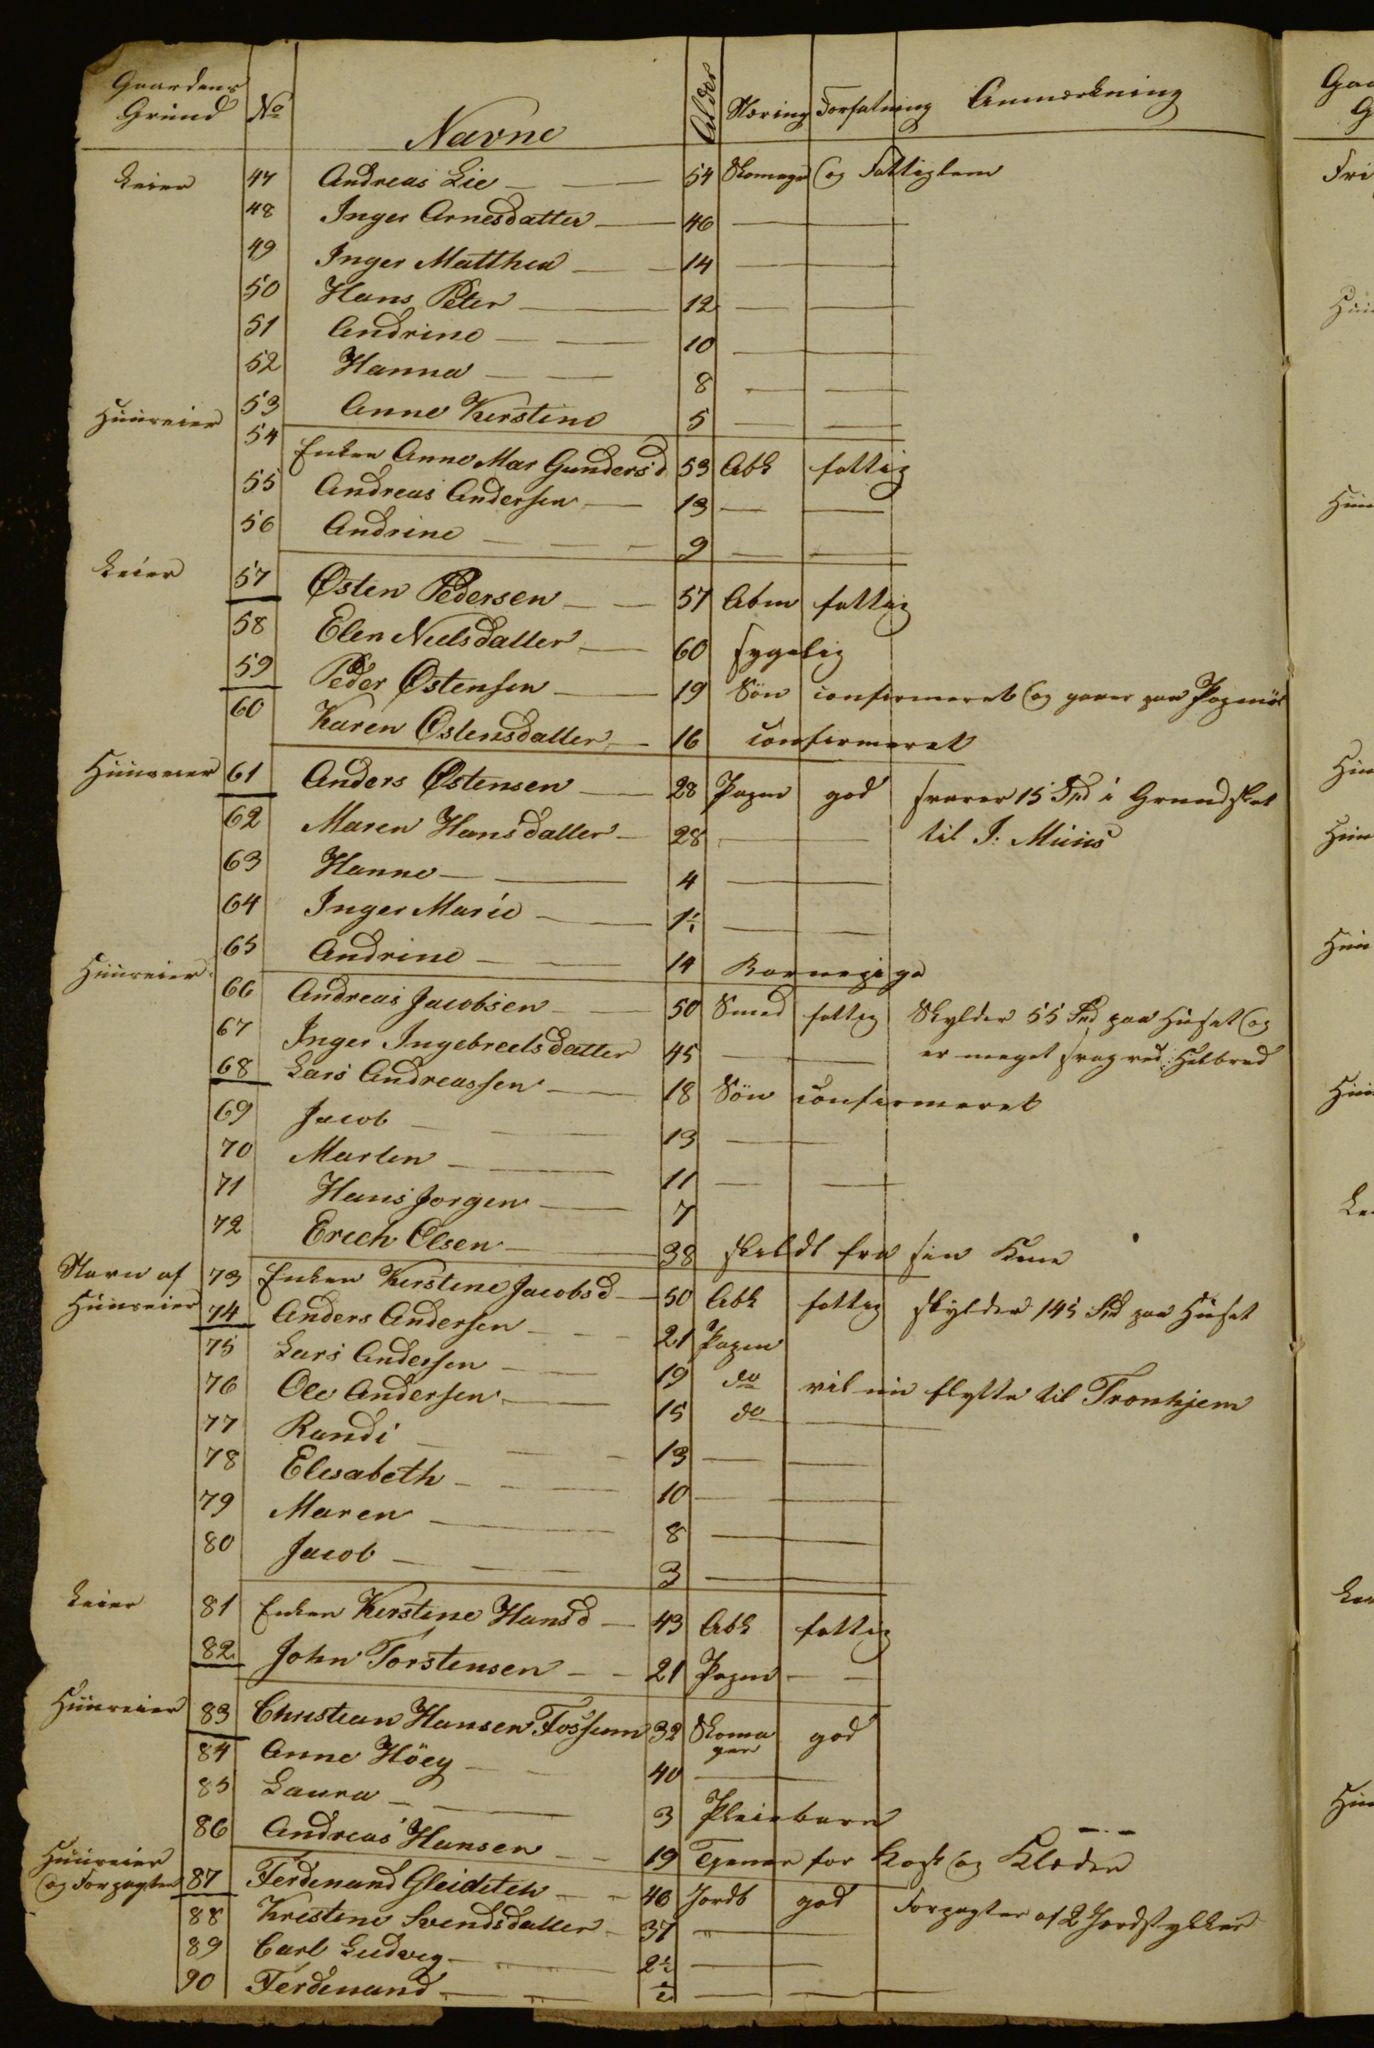 Gaardens Grund No Navne Alder Næring Forfatning Anmærkning
Leier 47 Andreas Lie 54 Skomager og Fattiglem
48 Inger Arnesdatter 46
49 Inger Matthea 14
50 Hans Peter 12
51 Andrine 10
52 Hanna 8
53 Anne Kirstine 5
Huuseier 54 Enken Anne Mar Gundersd 53 Abk fattig
55 Andreas Andersen 13
56 Andrine 9
Leier 57 Østen Pedersen 57 Abm fattig
58 Elen Neelsdatter 60 sygelig
59 Peder Østensen 19 Søn confirmeret og gaaer paa
60 Karen Østensdatter 16 confirmeret
Huuseier 61 Anders Østensen 28 god svarer 15 Spd i Grundskat
62 Maren Hansdatter 28 til J: Muus
63 Hanne 4
64 Inger Marie 1½
65 Andrine 14 Barnepige
Huuseier 66 Andreas Jacobsen 50 Smed fattig Skylder 55 Spd paa Huset og
67 Inger Ingebreelsdatter 45 er meget svag ved Helbred
68 Lars Andreassen 18 Søn confirmeret
69 Jacob 13
70 Marten 11
71 Hans Jørgen 7
72 Erich Olsen 38 skildt fra sin Kone
Navn af Huuseier 73 Enken Kirstine Jacobsd 50 Abk fattig skylder 145 Spd paa Huset
74 Anders Andersen 21
75 Lars Andersen 19 do vil nu flytte til Tronhjem
76 Ole Andersen 15 do
77 Randi 13
78 Elisabeth 10
79 Maren 8
80 Jacob 3
Leier 81 Enken Kirstine Hansd 43 Abk fattig
82 John Torstensen 21
Huuseier 83 Christian Hansen Fossum 32 Skomager god
84 Anne Höeg 40
85 Laura 3 Pleiebarn
86 Andreas Hansen 19 Tjener for Kost og Klæder
Huuseier og Forpagter 87 Ferdenand Gleiditch 46 Jordb god Forpagter af 2 Jordstykker
88 Kristine Svendsdatter 37
89 Carl Ludvig 2½
90 Ferdenand ½